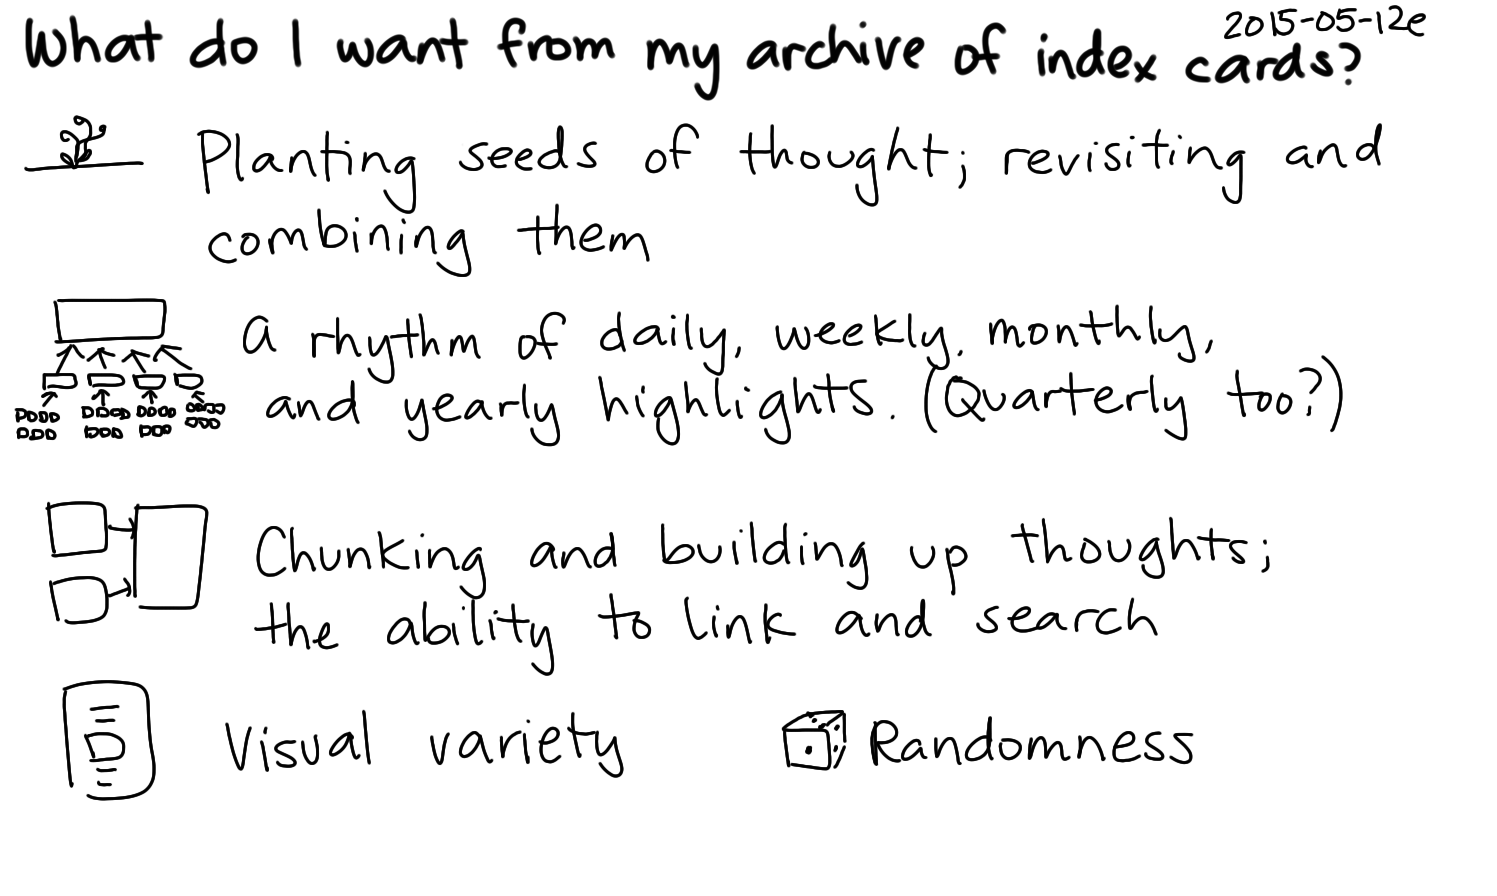 2015-05-12e
What do I want from my archive of index cards?
Planting seeds of thought; revisiting and
combining them
a rhythm of daily, weekly, monthly,
and yearly highlights. (Quarterly too?)
Chunking and building up thoughts;
the ability to link and search
Visual variety
Randomness